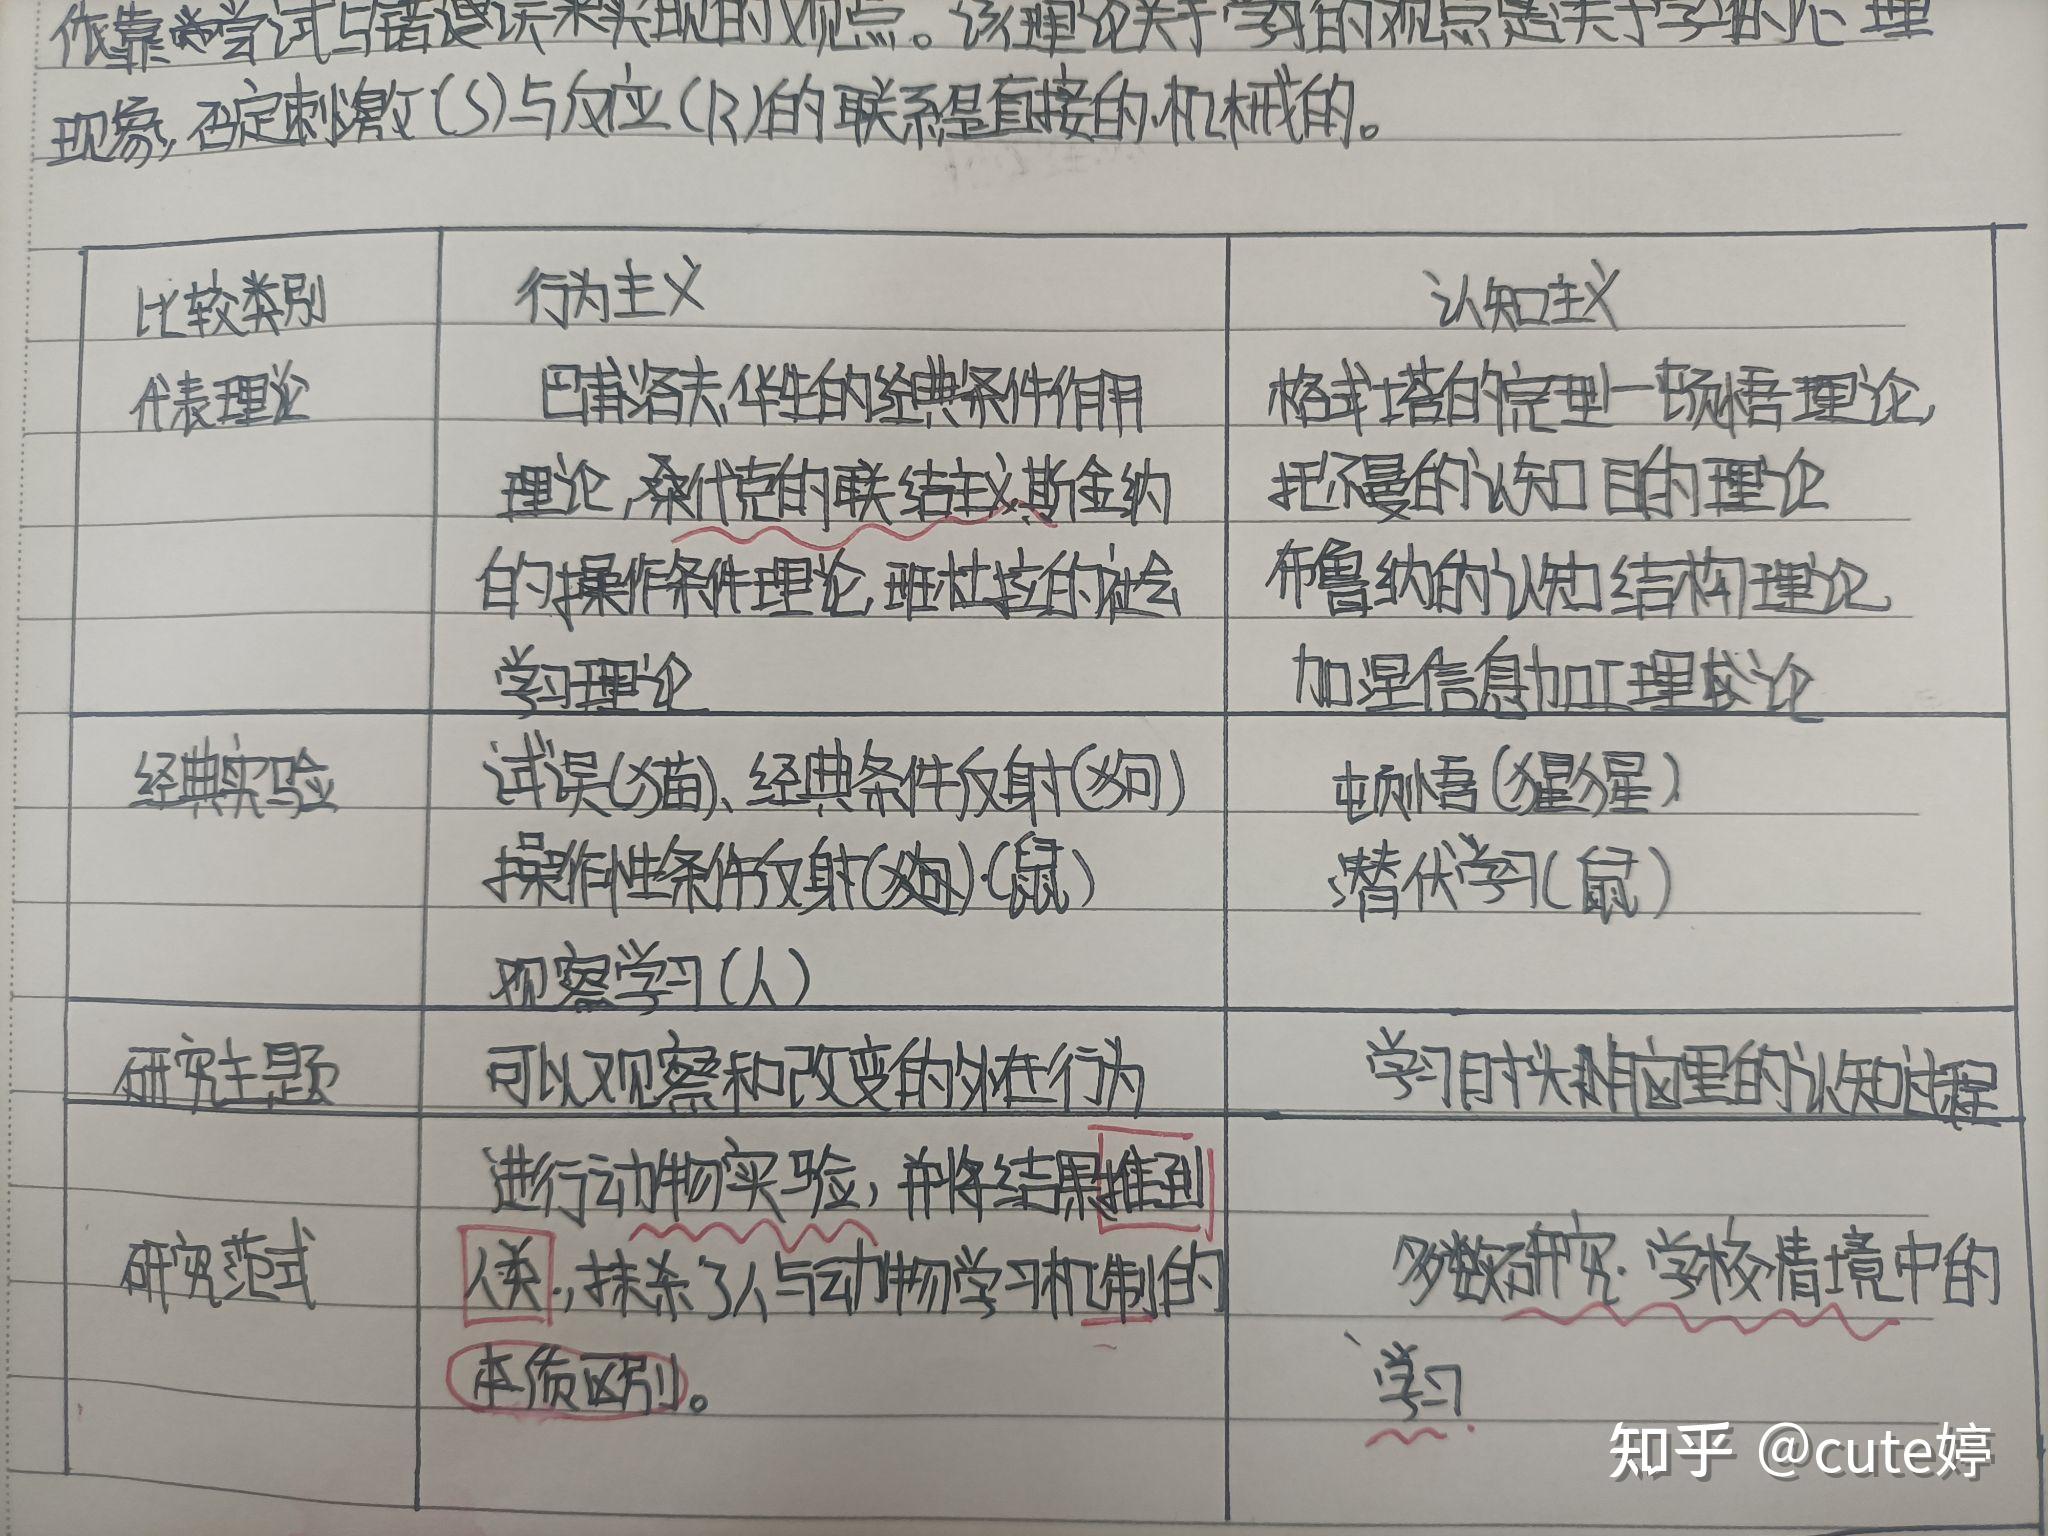 依靠尝试与错误来实现的观点。该理论关于学习的观点是关于学习的心理
现象，否定刺激(S)与反应(R)的联系是直接的、机械的。
比较类别 行为主义 认知主义
代表理论 巴甫洛夫、华生的经典条件作用 格式塔的完型—顿悟理论，
理论，桑代克的联结主义，斯金纳 托尔曼的认知目的理论
的操作条件理论，班杜拉的社会 布鲁纳的认知结构理论
学习理论 加涅信息加工理论
经典实验 试误(猫)、经典条件反射(狗) 顿悟(猩猩)
操作性条件反射(鼠) 潜伏学习(鼠)
观察学习(人)
研究主题 可以观察和改变的外在行为 学习时头脑里的认知过程
进行动物实验，并将结果推到
研究范式 人类，抹杀了人与动物学习机制的 多数研究学校情境中的
本质区别。 学习
知乎 @cute婷